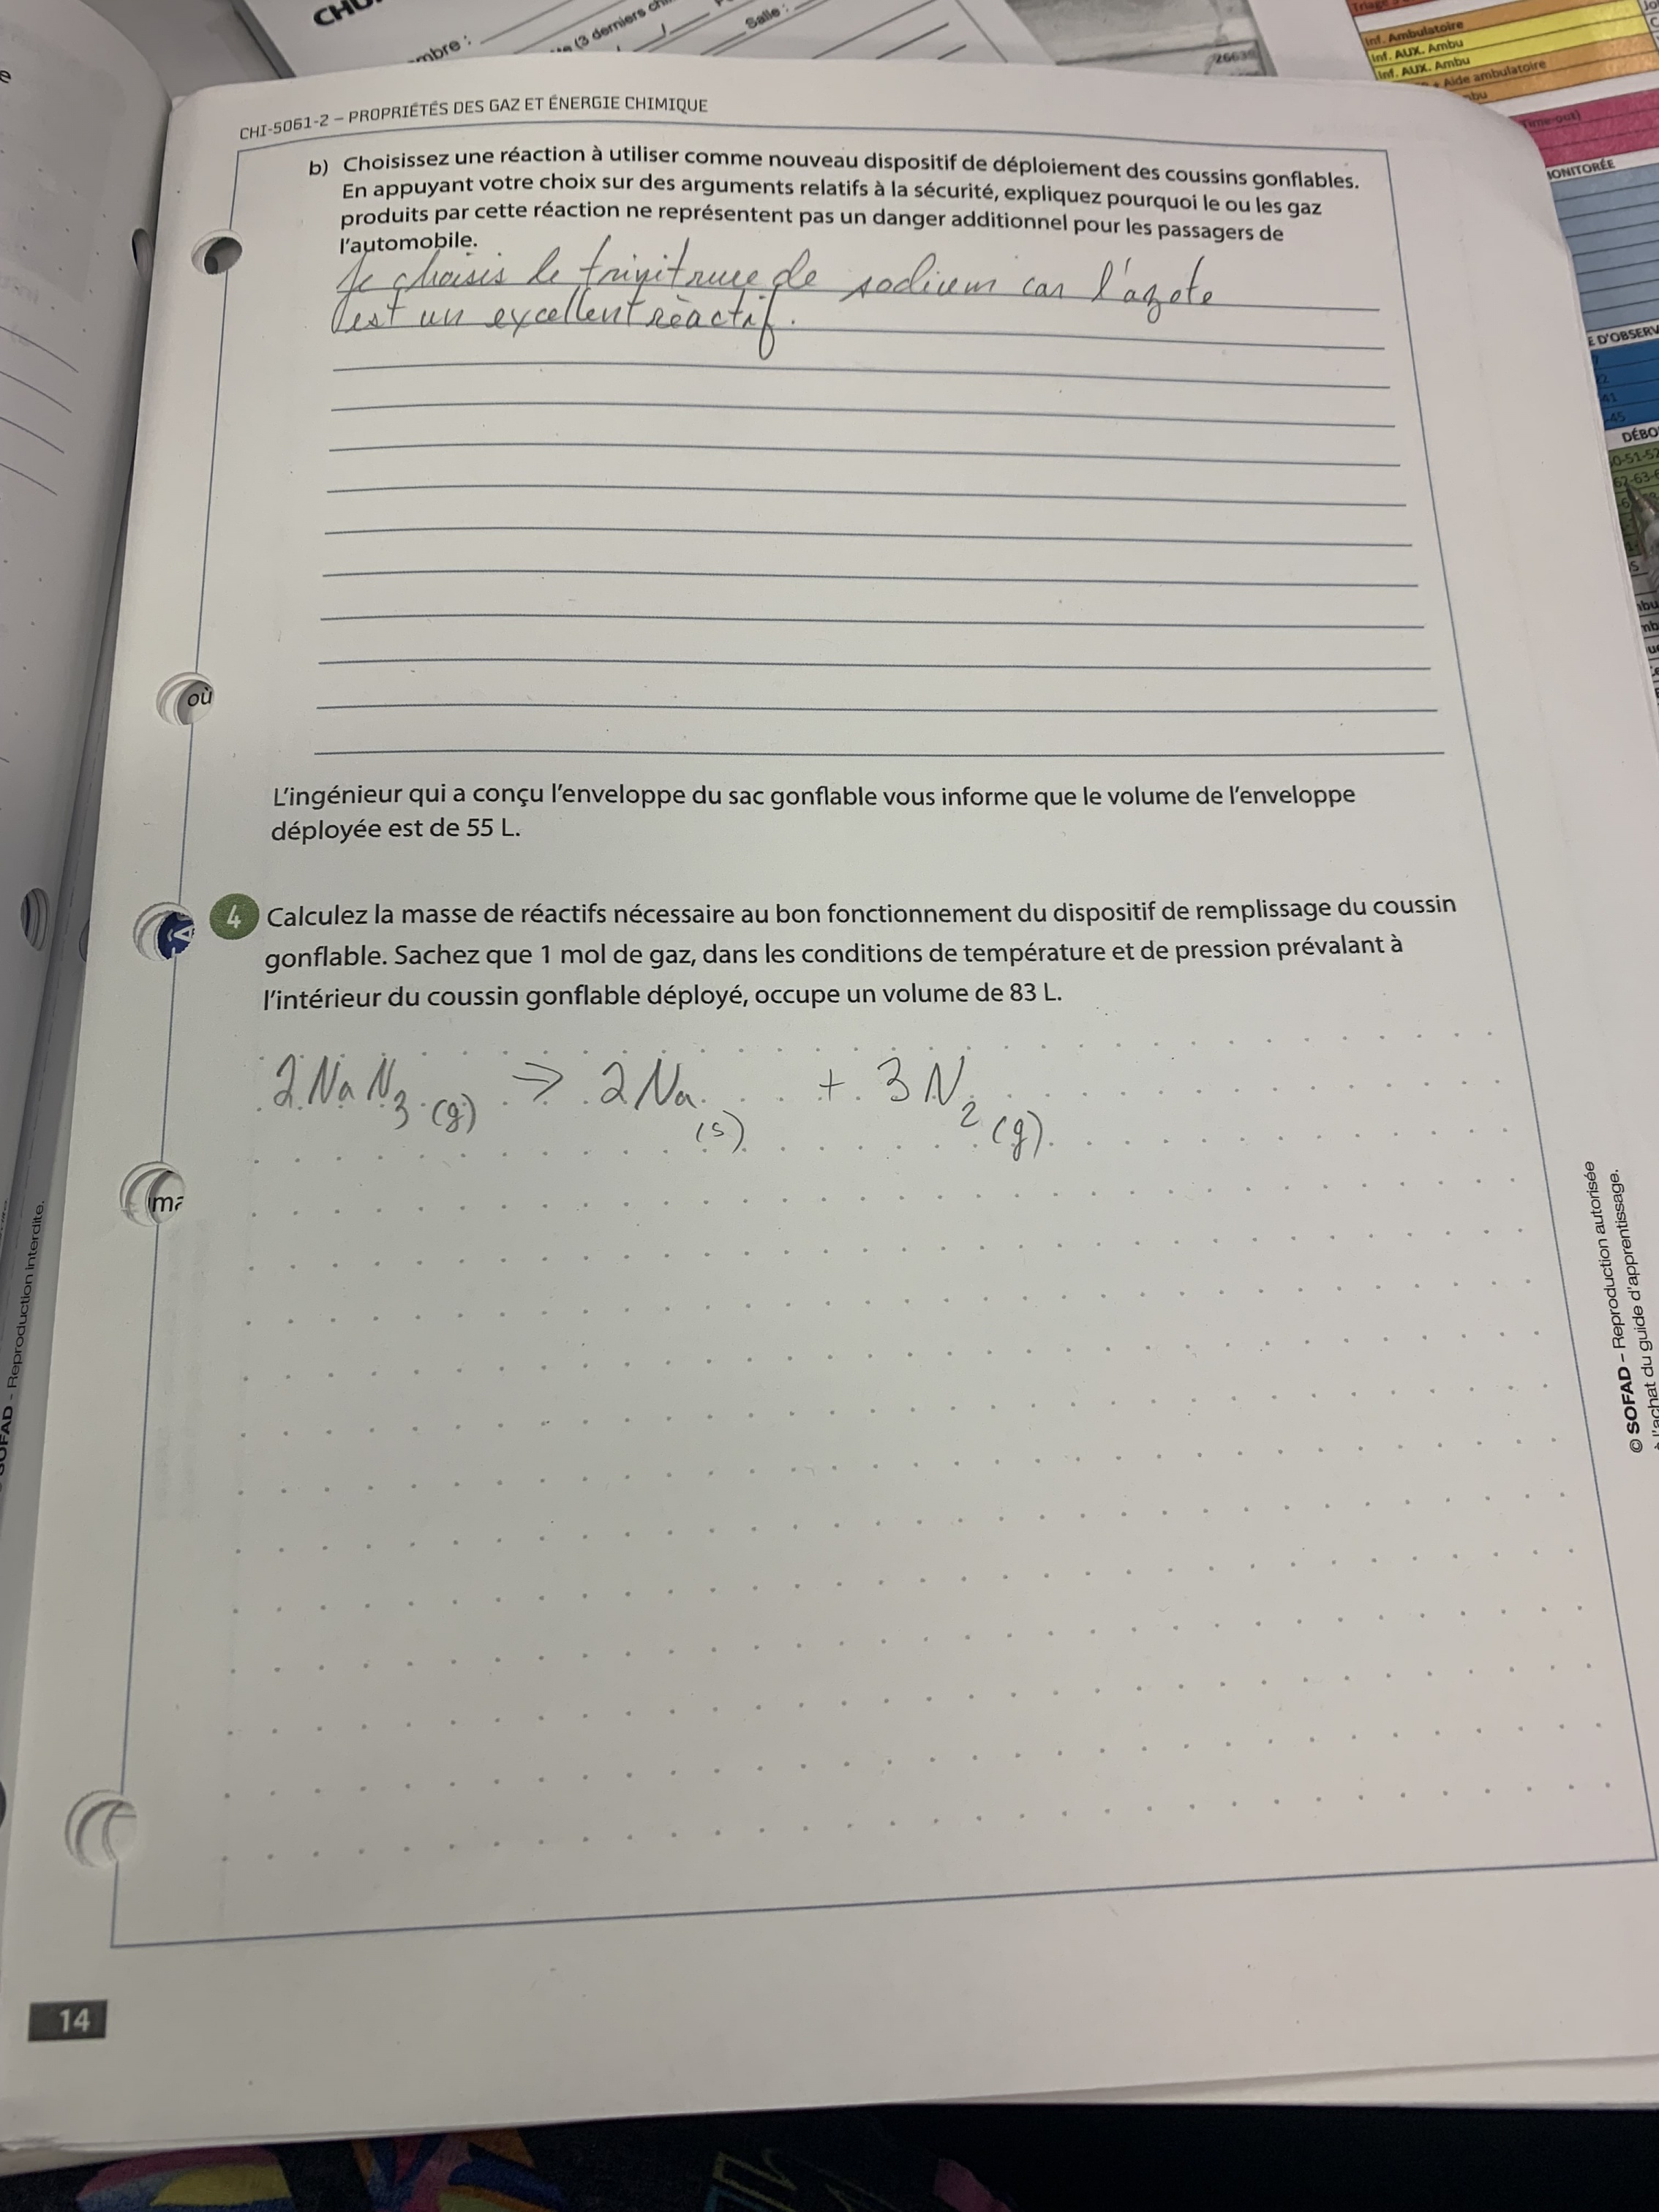 CHI-5061-2 – PROPRIÉTÉS DES GAZ ET ÉNERGIE CHIMIQUE
b) Choisissez une réaction à utiliser comme nouveau dispositif de déploiement des coussins gonflables.
En appuyant votre choix sur des arguments relatifs à la sécurité, expliquez pourquoi le ou les gaz
produits par cette réaction ne représentent pas un danger additionnel pour les passagers de
l'automobile.
Je choisis le trinitrure de sodium car l'azote
est un excellent réactif.
où
L'ingénieur qui a conçu l'enveloppe du sac gonflable vous informe que le volume de l'enveloppe
déployée est de 55 L.
4 Calculez la masse de réactifs nécessaire au bon fonctionnement du dispositif de remplissage du coussin
gonflable. Sachez que 1 mol de gaz, dans les conditions de température et de pression prévalant à
l'intérieur du coussin gonflable déployé, occupe un volume de 83 L.
2NaN3(g) → 2Na(s) + 3N2(g)
14
© SOFAD – Reproduction autorisée
à l'achat du guide d'apprentissage.
SOFAD - Reproduction interdite.
mbre :
(3 derniers
Salle :
Inf. Ambulatoire
Inf. AUX. Ambu
Inf. AUX. Ambu
+ Aide ambulatoire